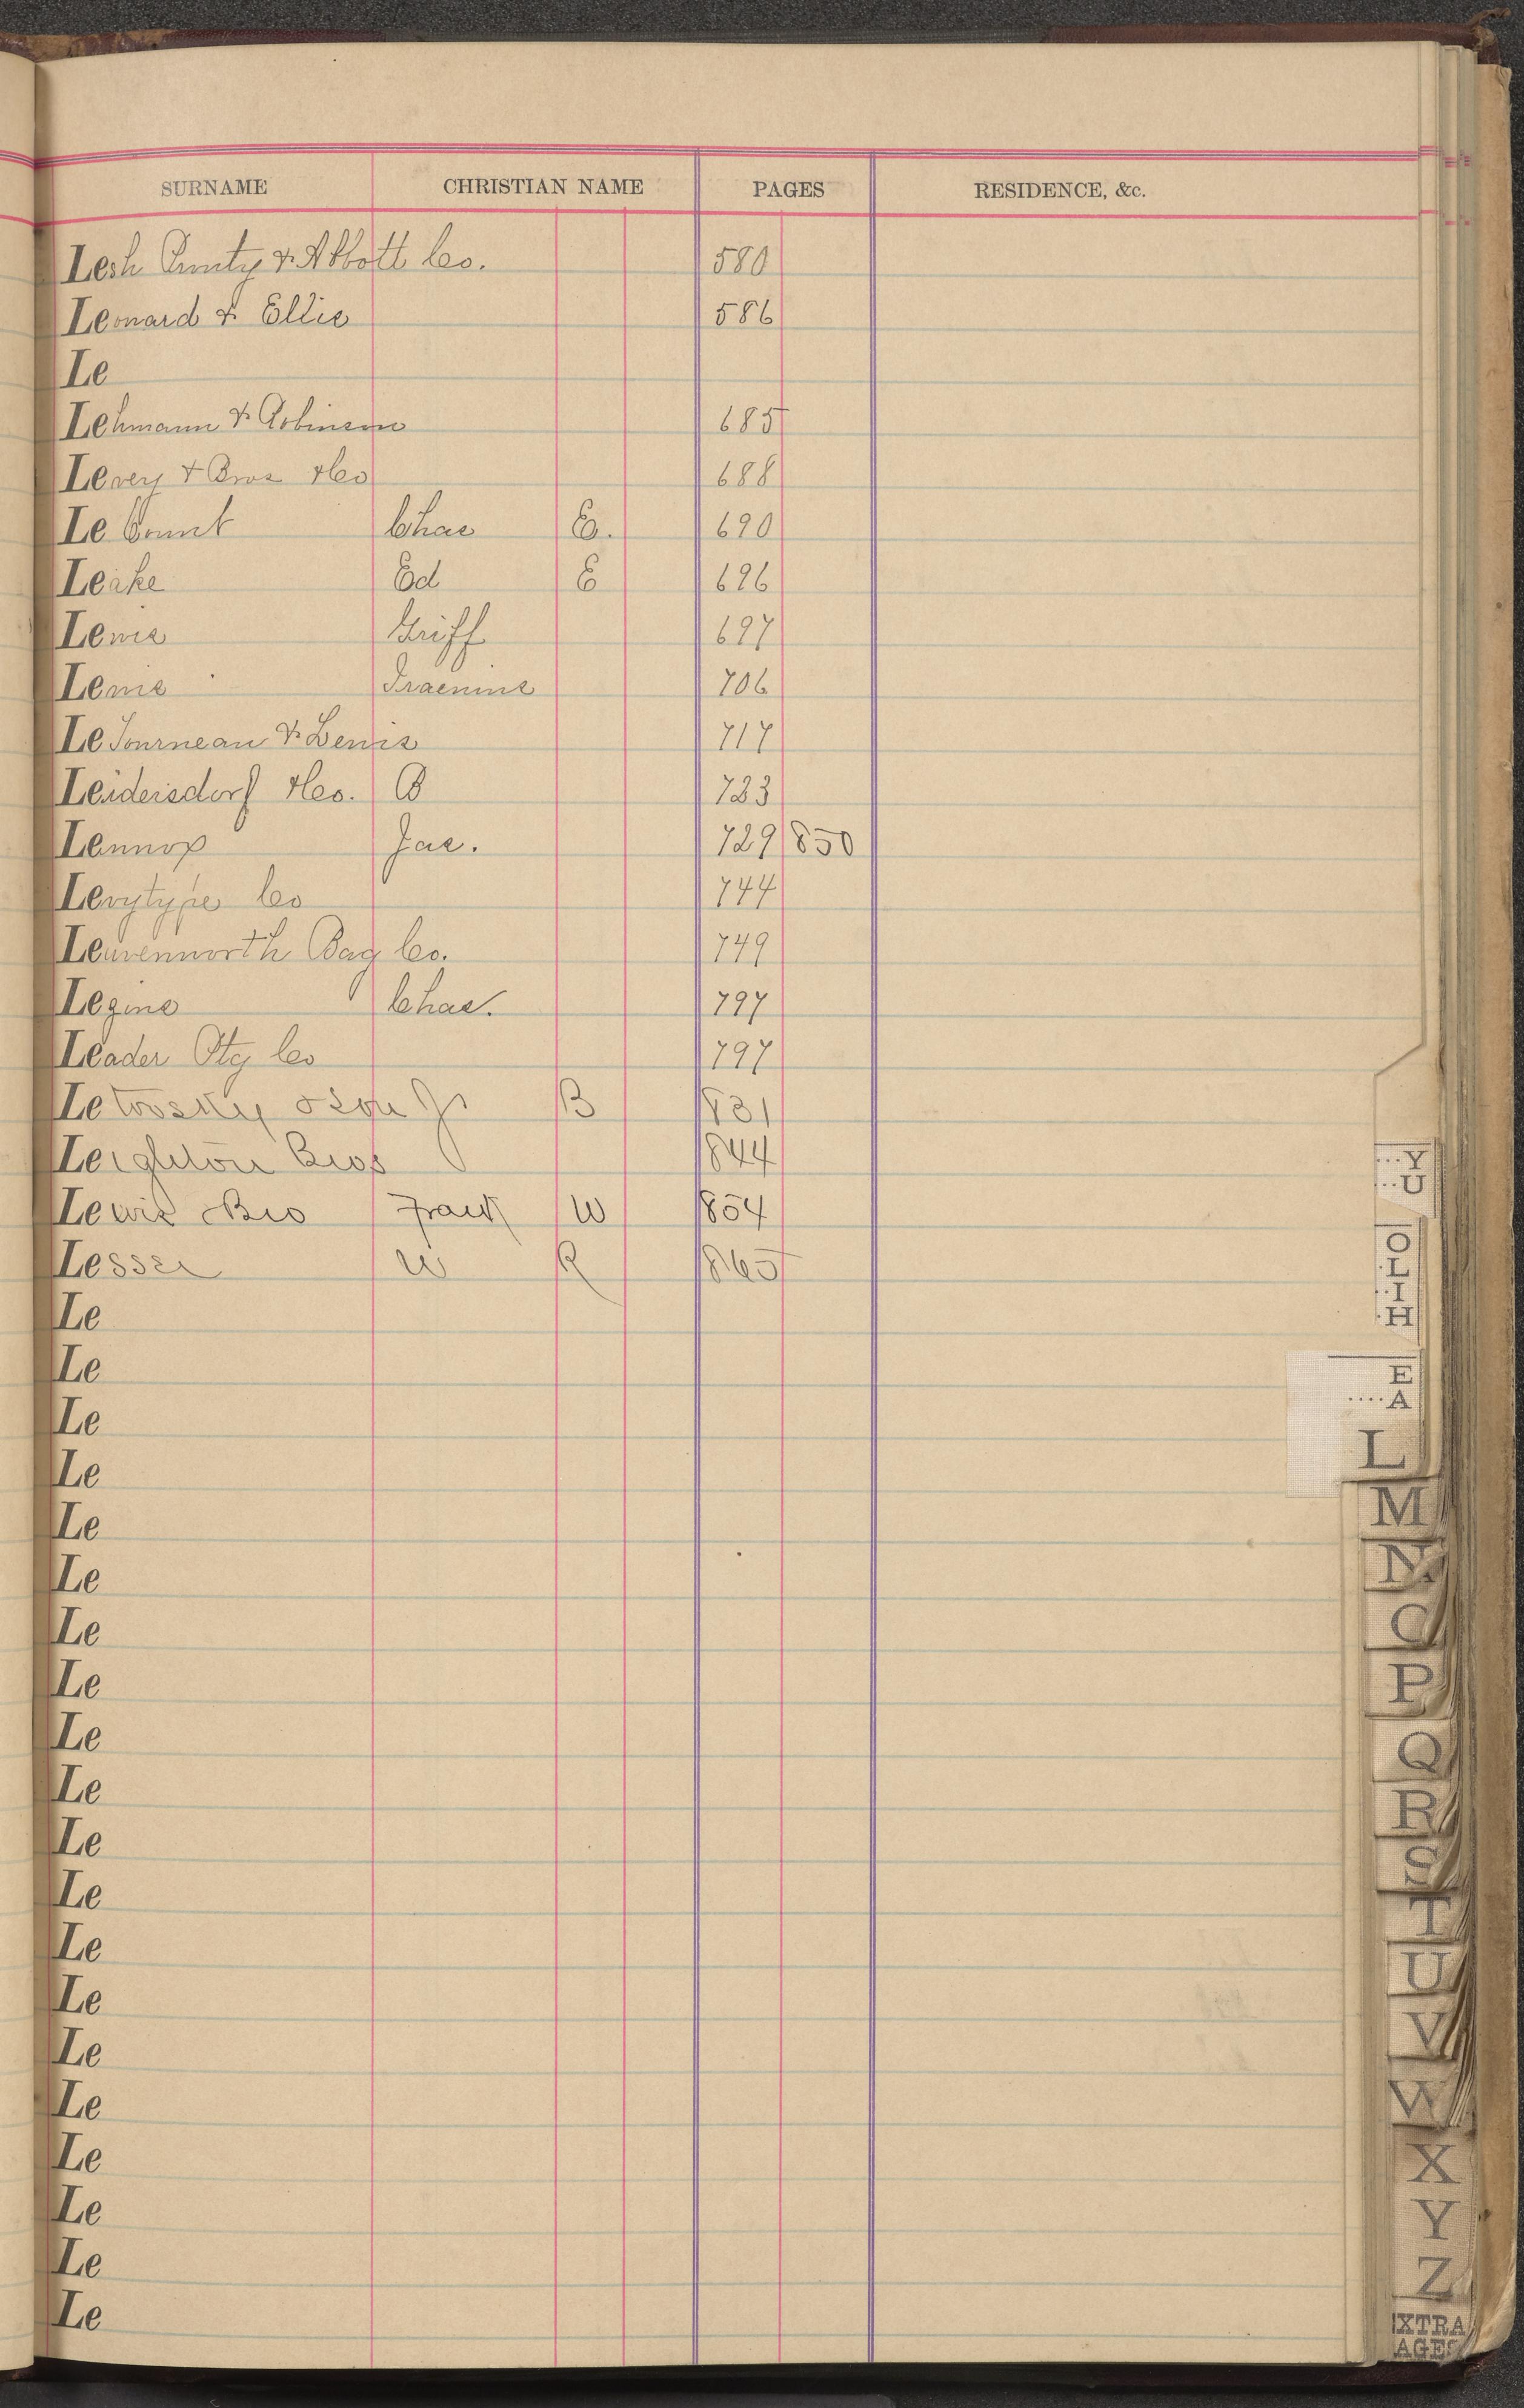 SURNAME CHRISTIAN NAME PAGES RESIDENCE, &c.
Lesh Prouty & Abbott Co. 580
Leonard & Ellis 586
Le
Lehmann & Robinson 685
Levey & Bros &Co 688
Le Count Chas E. 690
Leake Ed E 696
Lewis Griff 697
Lewis 706
Le Tourneau & Lewis 717
Leidersdorf &Co. B 723
Lennox Jas. 729 850
Levytype Co 744
Leavenworth Bag Co. 749
Legins Chas. 797
Leader Ptg Co 797
Letovsky & Son Jr B 831
Leighton Bros 844
Lewis Bro Frank W 854
Lesser W R 865
Le
Le
Le
Le
Le
Le
Le
Le
Le
Le
Le
Le
Le
Le
Le
Le
Le
Le
Le
Le
...Y
..U
O
.L
..I
.H
E
....A
L
M
N
O
P
Q
R
S
T
U
V
W
X
Y
Z
EXTRA
AGES